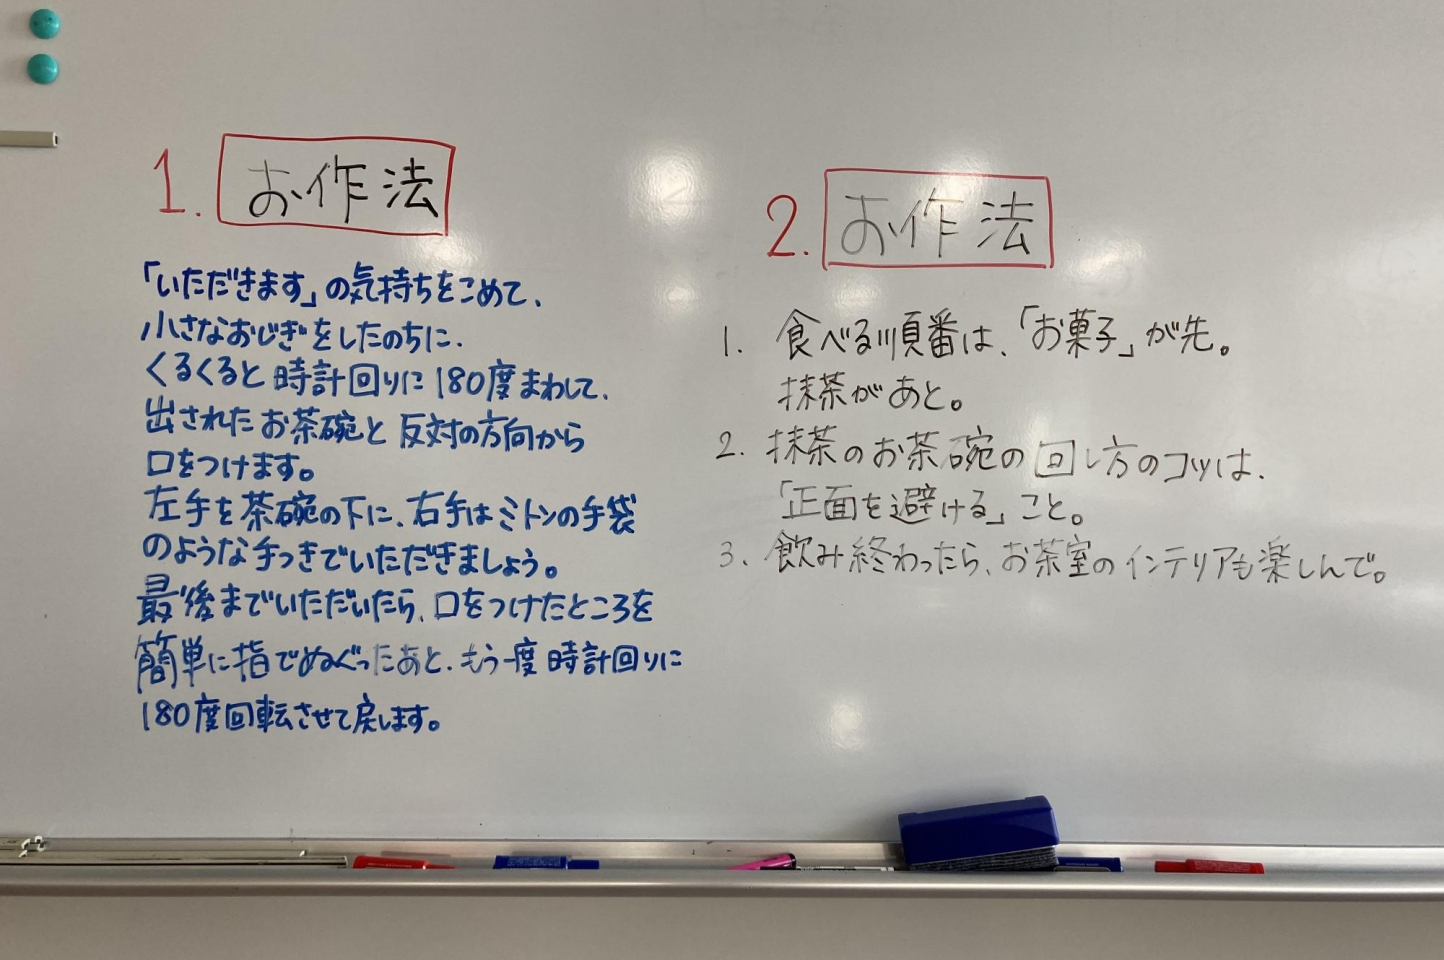 1. お作法
「いただきます」の気持ちをこめて、
小さなおじぎをしたのちに、
くるくると時計回りに180度まわして、
出されたお茶碗と反対の方向から
口をつけます。
左手を茶碗の下に、右手はミトンの手袋
のような手つきでいただきましょう。
最後までいただいたら、口をつけたところを
簡単に指でぬぐったあと、もう一度時計回りに
180度回転させて戻します。
2. お作法
1. 食べる順番は、「お菓子」が先。
抹茶があと。
2. 抹茶のお茶碗の回し方のコツは、
「正面を避ける」こと。
3. 飲み終わったら、お茶室のインテリアも楽しんで。